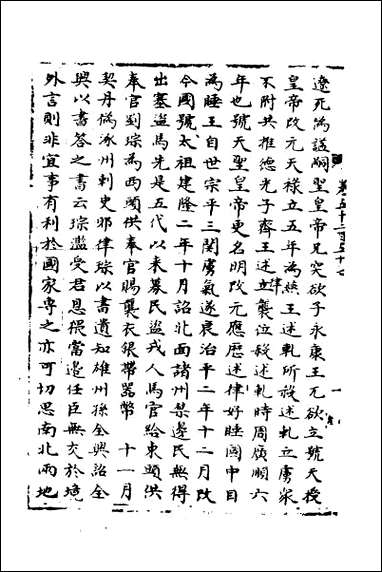 卷五千二百五十七 一
遼死偽諡嗣聖皇帝兄突欲子永康王兀欲立號天授
皇帝改元天祿立五年為燕王述軋所殺述軋立虜衆
不附共推德光子齊王述律立襲位殺述軋時周廣順六
年也號天聖皇帝更名明改元應歷述律好睡國中目
為睡王自世宗平三関虜氣遂衰治平二年十二月改
今國號太祖建隆二年十月詔北面諸州禁邊民無得
出塞盜馬先是五代以来募民盜戎人馬官給東頭供
奉官劉琮為西頭供奉官賜襲衣銀帶器幣 十一月
契丹偽涿州刺史耶律琮以書遺知雄州孫全興詔全
興以書答之書云琮濫受君恩猥當邊任臣無交於境
外言則非宜事有利於國家專之亦可切思南北兩地